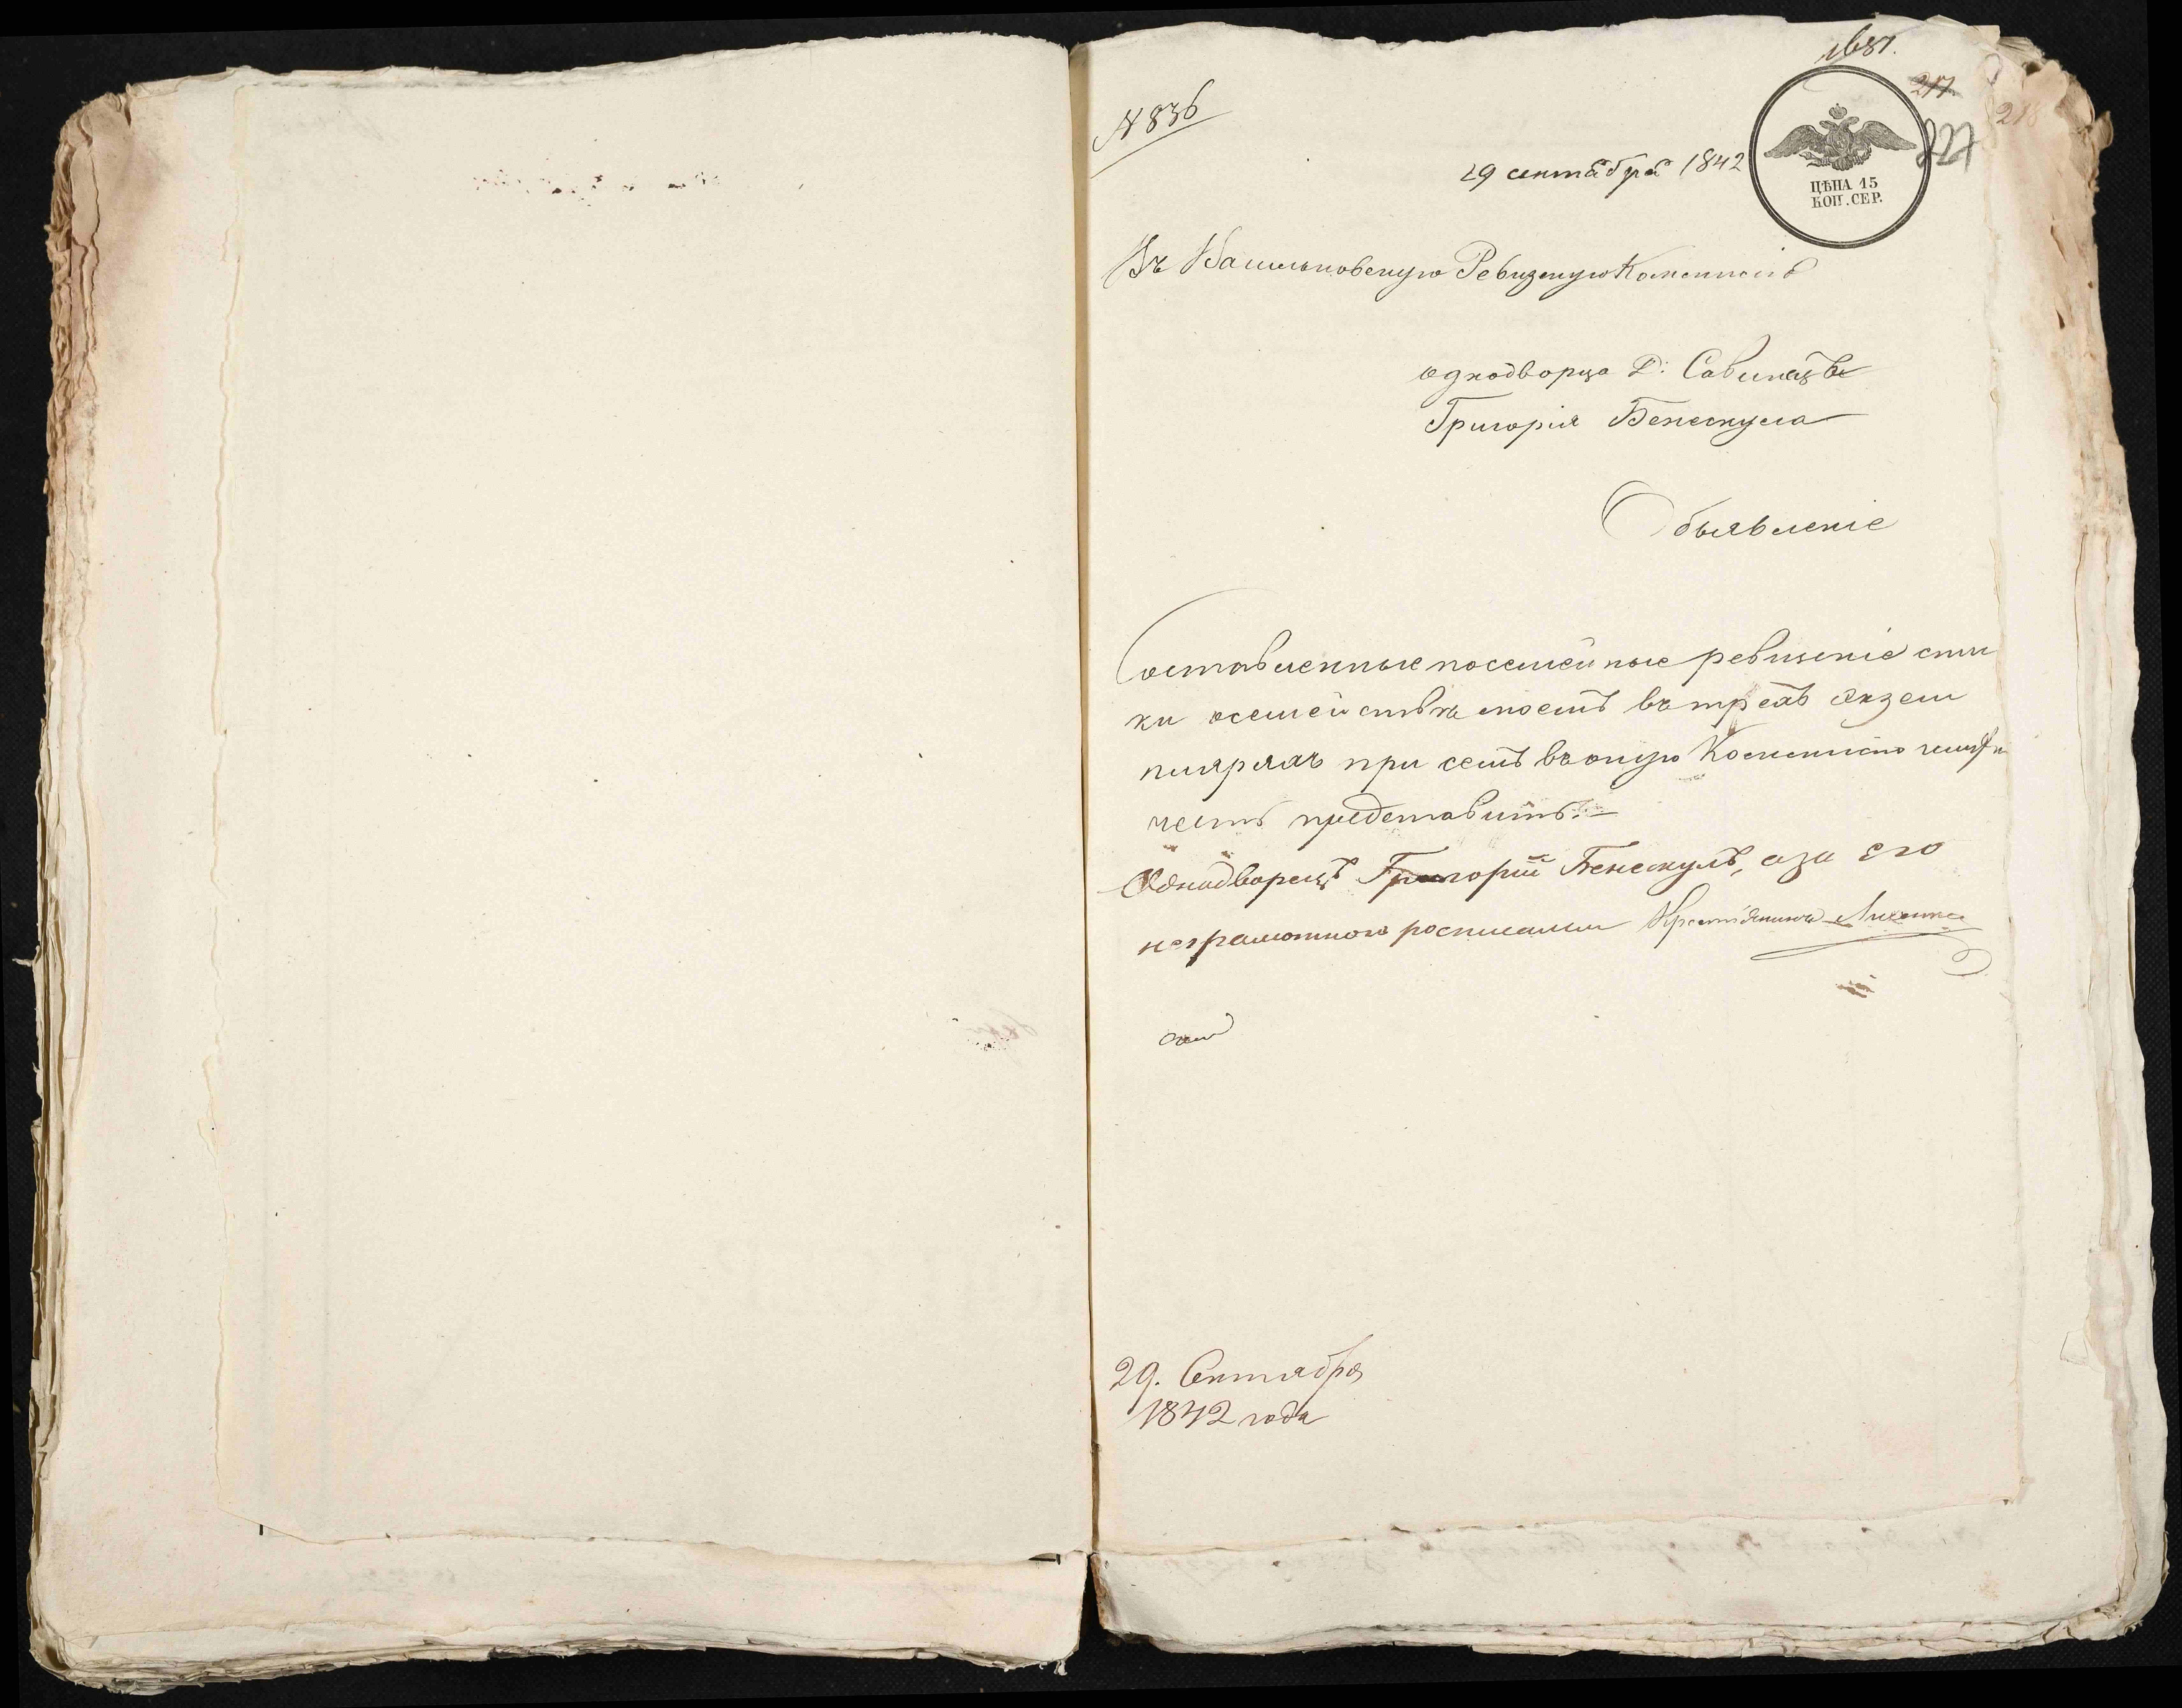 1687.
217
218
227
№ 836
29 сентября 1842
ЦѢНА 15
КОП. СЕР.
Въ Васильковскую Ревизскую Коммисію
однодворца Д: Савинецъ
Григорія Бенескула
Объявленіе
Составленные посемейные ревизскіе спи
ки о семействѣ моемъ въ трехъ экзем
плярахъ при семъ въ оную Коммисію имѣю
честь представить.—
Однодворецъ Григорій Бенескулъ, а за его
неграмотного росписался
29. Сентября
1842 года